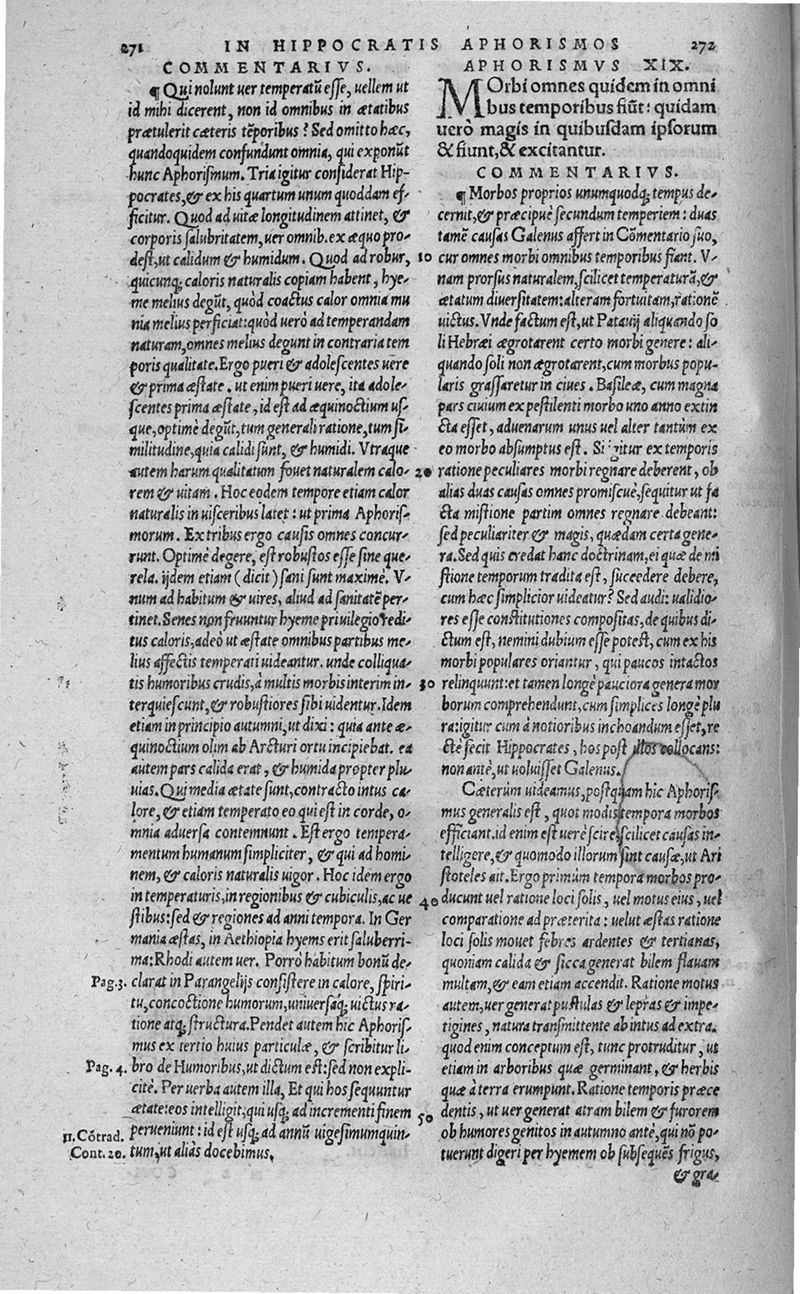 271 IN HIPPOCRATIS APHORISMOS 272
COMMENTARIVS.
¶ Qui nolunt uer temperatũ esse, uellem ut
id mihi dicerent, non id omnibus in ætatibus
prætulerit cæteris tẽporibus? Sed omitto hæc,
quandoquidem confundunt omnia, qui exponũt
hunc Aphorismum. Tria igitur considerat Hip-
pocrates, & ex his quartum unum quoddam ef-
ficitur. Quod ad uitæ longitudinem attinet, &
corporis salubritatem, uer omnib. ex æquo pro-
dest, ut calidum & humidum. Quod ad robur,
quicunq; caloris naturalis copiam habent, hye-
me melius degũt, quòd coactus calor omnia mu
nia melius perficiat: quòd uerò ad temperandam
naturam, omnes melius degunt in contraria tem
poris qualitate. Ergo pueri & adolescentes uere
& prima æstate. ut enim pueri uere, ita adole-
scentes prima æstate, id est ad æquinoctium us-
que, optimè degũt, tum generali ratione, tum si-
militudine, quia calidi sunt, & humidi. Vtraque
autem harum qualitatum fouet naturalem calo-
rem & uitam. Hoc eodem tempore etiam calor
naturalis in uisceribus latet: ut prima Aphoris-
morum. Ex tribus ergo causis omnes concur-
runt. Optimè degere, est robustos esse sine que-
rela. ijdem etiam (dicit) sani sunt maximè. V-
num ad habitum & uires, aliud ad sanitatẽ per-
tinet. Senes non fruuntur hyeme priuilegio redi-
tus caloris, adeò ut æstate omnibus partibus me-
lius affectis temperati uideantur. unde colliqua-
tis humoribus crudis, à multis morbis interim in-
terquiescunt, & robustiores sibi uidentur. Idem
etiam in principio autumni, ut dixi: quia ante æ-
quinoctium olim ab Arcturi ortu incipiebat. ea
autem pars calida erat, & humida propter plu-
uias. Qui media ætate sunt, contracto intus ca-
lore, & etiam temperato eo qui est in corde, o-
mnia aduersa contemnunt. Est ergo tempera-
mentum humanum simpliciter, & qui ad homi-
nem, & caloris naturalis uigor. Hoc idem ergo
in temperaturis, in regionibus & cubiculis, ac ue
stibus: sed & regiones ad anni tempora. In Ger
mania æstas, in Aethiopia hyems erit saluberri-
ma: Rhodi autem uer. Porrò habitum bonũ de-
Pag.3. clarat in Parangelijs consistere in calore, spiri-
tu, concoctione humorum, uniuersaq; uictus ra-
tione atq; structura. Pendet autem hic Aphoris-
mus ex tertio huius particulæ, & scribitur li-
Pag. 4. bro de Humoribus, ut dictum est: sed non expli-
citè. Per uerba autem illa, Et qui hos sequuntur
ætate: eos intelligit, qui usq; ad incrementi finem
11. Cõtrad. perueniunt: id est usq; ad annũ uigesimumquin-
Cont. 20. tum, ut aliàs docebimus.
APHORISMVS XIX.
MOrbi omnes quidem in omni
bus temporibus fiũt: quidam
uerò magis in quibusdam ipsorum
& fiunt, & excitantur.
COMMENTARIVS.
¶ Morbos proprios unumquodq; tempus de-
cernit, & præcipuè secundum temperiem: duas
tamẽ causas Galenus affert in Cõmentario suo,
10 cur omnes morbi omnibus temporibus fiant. V-
nam prorsus naturalem, scilicet temperaturã, &
ætatum diuersitatem: alteram fortuitam, rationẽ
uictus. Vnde factum est, ut Patauij aliquando so
li Hebræi ægrotarent certo morbi genere: ali-
quando soli non ægrotarent, cum morbus popu-
laris grassaretur in ciues. Basileæ, cum magna
pars ciuium ex pestilenti morbo uno anno extin
cta esset, aduenarum unus uel alter tantũm ex
eo morbo absumptus est. Si igitur ex temporis
20 ratione peculiares morbi regnare deberent, ob
alias duas causas omnes promiscuè, sequitur ut fa
cta mistione partim omnes regnare debeant:
sed peculiariter & magis, quædam certa gene-
ra. Sed quis credat hanc doctrinam, ei quæ de mi
stione temporum tradita est, succedere debere,
cum hæc simplicior uideatur? Sed audi: ualidio-
res esse constitutiones compositas, de quibus di-
ctum est, nemini dubium esse potest, cum ex his
morbi populares oriantur, qui paucos intactos
30 relinquunt: et tamen longè pauciora genera mor
borum comprehendunt, cum simplices longè plu
ra: igitur cum à notioribus inchoandum esset, re
ctè fecit Hippocrates, hos post illos collocans:
non antè, ut uoluisset Galenus.
Cæterùm uideamus, postquam hic Aphoris-
mus generalis est, quot modis tempora morbos
efficiant. id enim est uerè scire, scilicet causas in-
telligere, & quomodo illorum sint causæ, ut Ari
stoteles ait. Ergo primùm tempora morbos pro-
40 ducunt uel ratione loci solis, uel motus eius, uel
comparatione ad præterita: uelut æstas ratione
loci solis mouet febres ardentes & tertianas,
quoniam calida & sicca generat bilem flauam
multam, & eam etiam accendit. Ratione motus
autem, uer generat pustulas & lepras & impe-
tigines, natura transmittente ab intus ad extra.
quod enim conceptum est, tunc protruditur, ut
etiam in arboribus quæ germinant, & herbis
quæ à terra erumpunt. Ratione temporis præce
50 dentis, ut uer generat atram bilem & furorem
ob humores genitos in autumno antè, qui nõ po-
tuerunt digeri per hyemem ob subsequẽs frigus,
& gra-